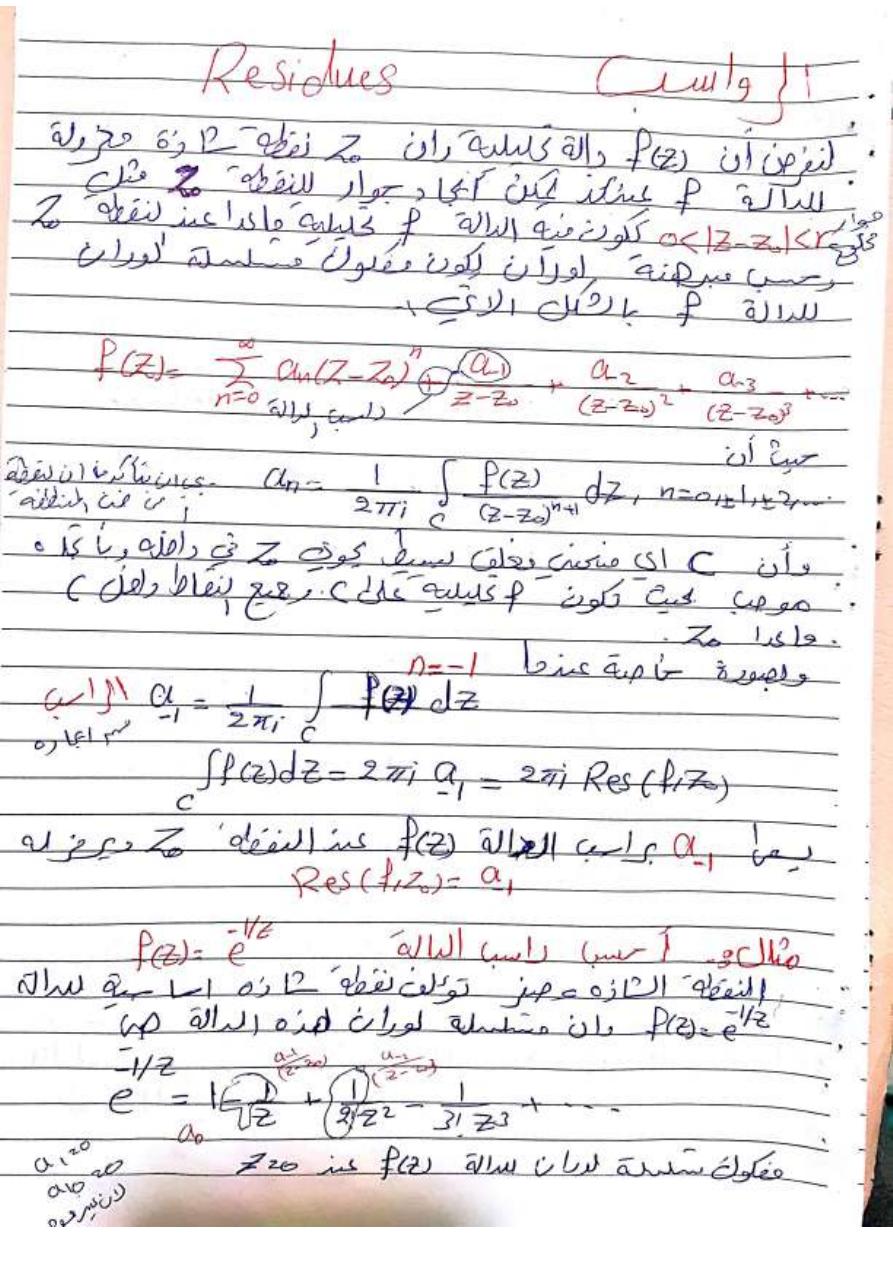 الرواسب Residues
لنفرض أن f(z) دالة تحليلية وان z₀ نقطة شاذة معزولة
للدالة f عندئذ يمكن أيجاد جوار للنقطة z₀ مثل
0<|z-z₀|<r تكون فيه الدالة f تحليلية ماعدا عند النقطة z₀
وحسب مبرهنة لوران يكون مفكوك متسلسلة لوران
للدالة f بالشكل الاتي
f(z)= ∑_{n=0}^{∞} an(z-z₀)^n + a-1/(z-z₀) + a-2/(z-z₀)^2 + a-3/(z-z₀)^3 + ....
راسب الدالة
حيث أن
an = 1/(2πi) ∫_C f(z)/(z-z₀)^{n+1} dz, n=0,±1,±2,...
وأن C اي منحني مغلق بسيط يحوي z₀ في داخله وبأتجاه
موجب بحيث تكون f تحليلية على C وجميع النقاط داخل C
ماعدا z₀.
وبصورة خاصة عندما n=-1
a-1 = 1/(2πi) ∫_C f(z) dz الراسب
∫_C f(z)dz = 2πi a-1 = 2πi Res(f,z₀)
يسمى a-1 براسب الدالة f(z) عند النقطة z₀ ويرمز له
Res(f,z₀) = a-1
مثال:- أحسب راسب الدالة f(z)= e^{-1/z}
النقطة الشاذة صفر تؤلف نقطة شاذه اساسية للدالة
f(z)=e^{-1/z} وان متسلسلة لوران لهذه الدالة هي
a-1/(z-z0) a-2/(z-z0)
e^{-1/z} = 1 - 1/z + 1/(2!z^2) - 1/(3! z^3) + ....
a₀
مفكوك متسلسلة لوران للدالة f(z) عند z=0